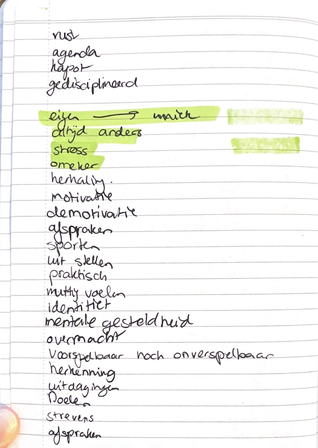 rust
agenda
kapot
gedisciplineerd
eigen → uniek
altijd anders
stress
omeker
herhaling.
motivatie
demotivatie
afspraken
sporten
uit stellen
praktisch
voelen
identiteit
mentale gesteldheid
overmacht
Voorspelbaar noch onverspelbaar
herkenning
uitdagingen
Doelen
strevens
afspraken